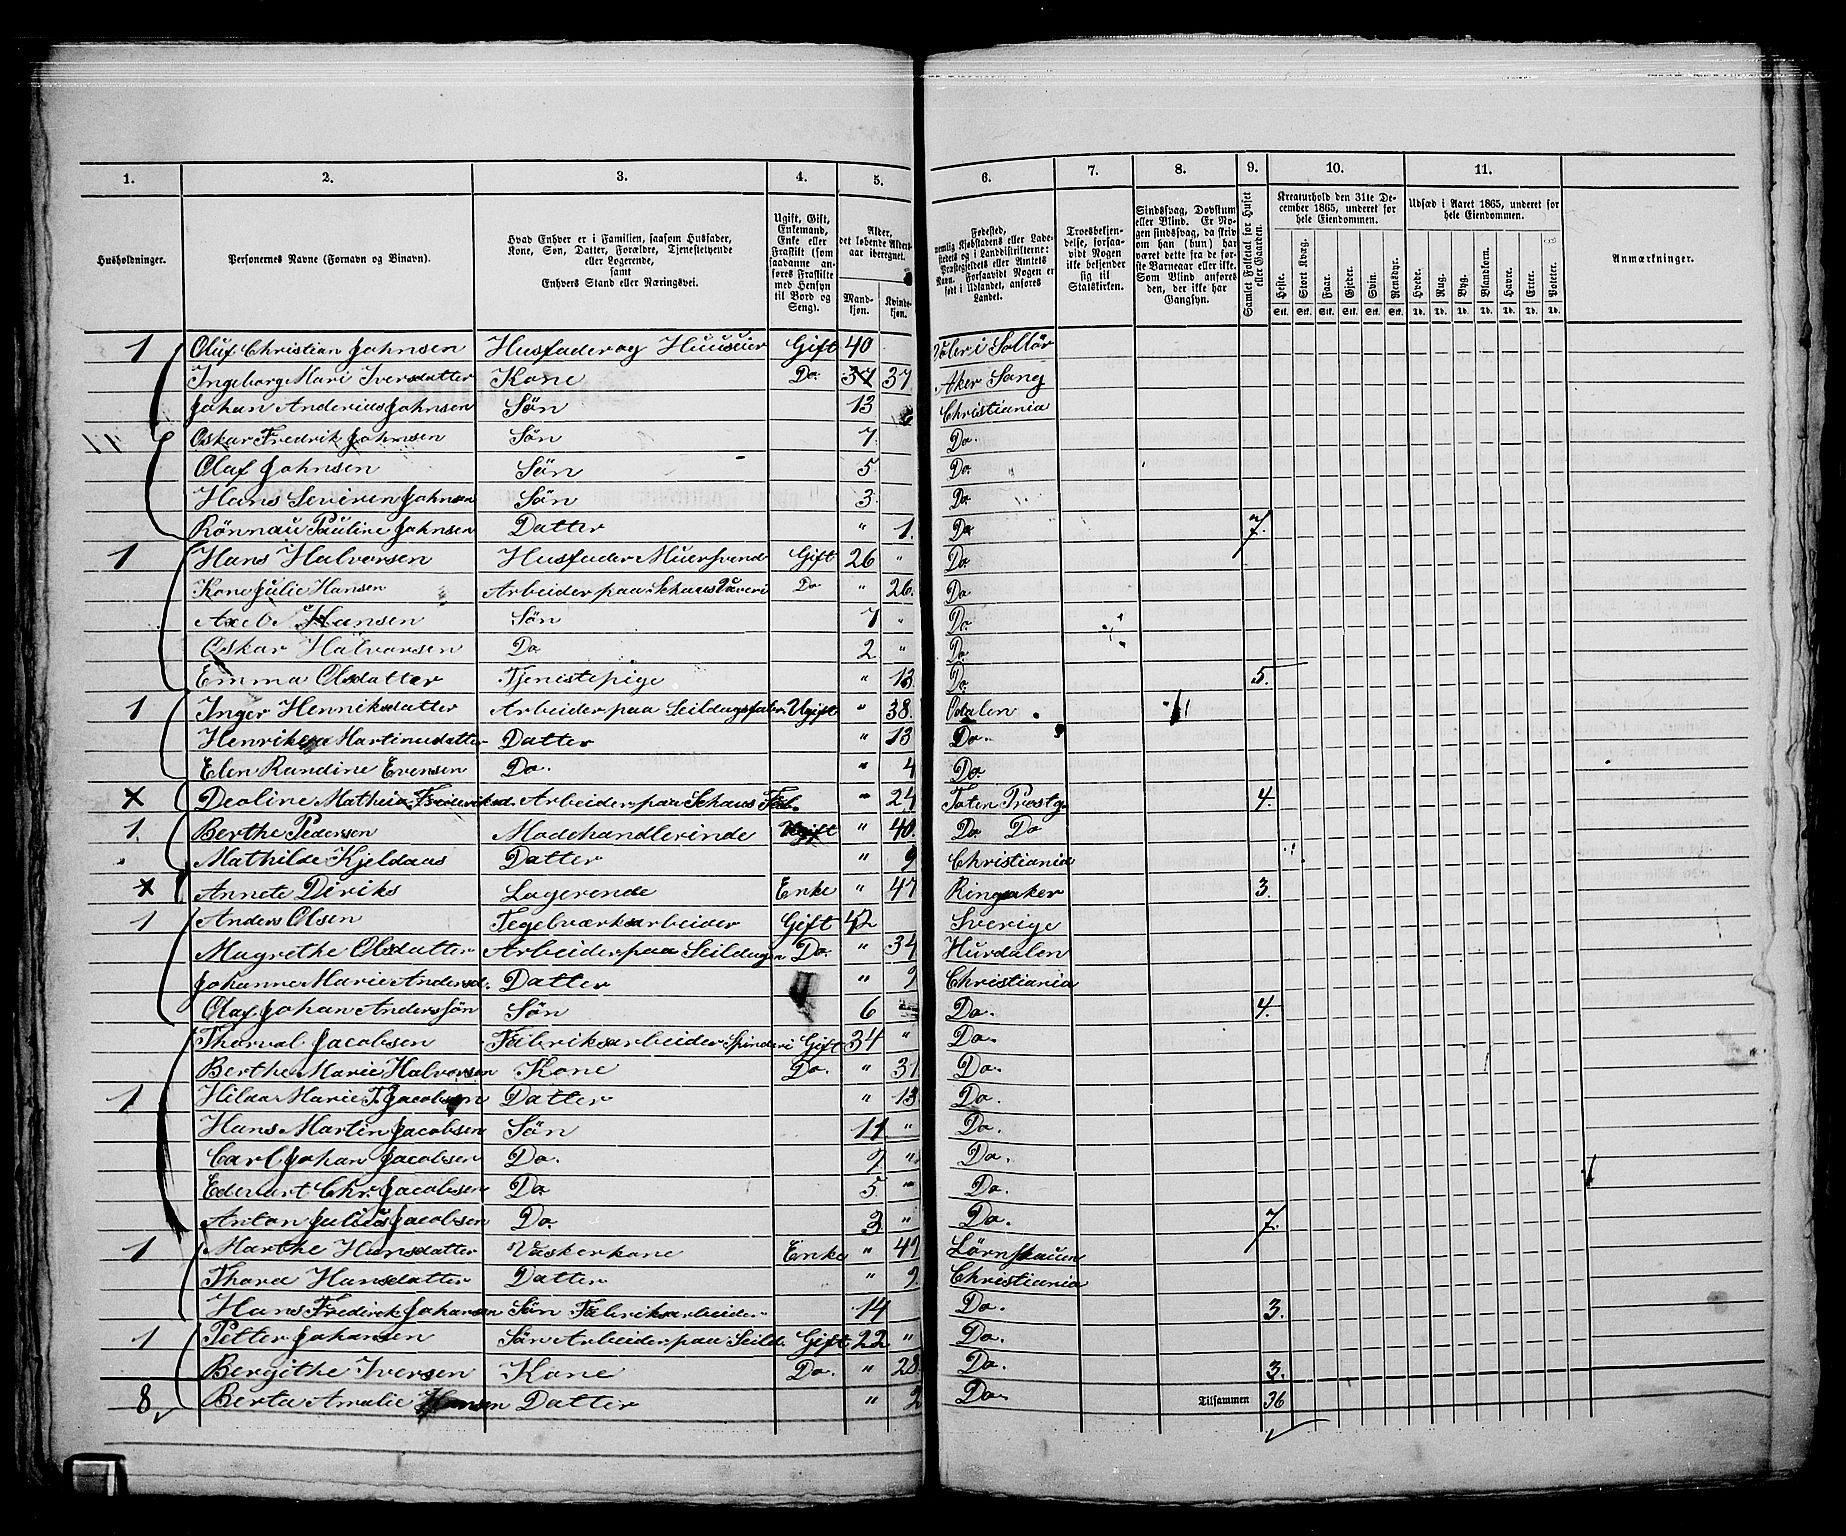 1. 2. 3. 4. 5. 6. 7. 8. 9. 10. 11.
Husholdninger.
Personernes Navne (Fornavn og Binavn).
Hvad Enhver er i Familien, saasom Husfader, Kone, Søn, Datter, Forældre, Tjenestetyende eller Logerende, samt Enhvers Stand eller Næringsvei.
Ugift, Gift, Enkemand, Enke eller Fraskilt (som saadanne anføres Fraskilte med Hensyn til Bord og Seng).
Alder, det løbende Aldersaar iberegnet.
Mandkjøn. Kvindekjøn.
Fødested, nemlig Kjøbstadens eller Ladestedets og i Landdistrikterne: Præstegjeldets eller Amtets Navn. Forsaavidt Nogen er født i Udlandet, anføres Landet.
Troesbekjendelse, forsaavidt Nogen ikke bekjender sig til Statskirken.
Sindssvag, Døvstum eller Blind. Er Nogen sindssvag, da skrives om han (hun) har været dette fra de første Barneaar eller ikke. Som Blind anføres den, der ikke har Gangsyn.
Samlet Folketal for Huset eller Gaarden.
Kreaturhold den 31te December 1865, underet for hele Eiendommen.
Heste. Stort Kvæg. Faar. Gjeder. Svin. Rensdyr.
Stk. Stk. Stk. Stk. Stk. Stk.
Udsæd i Aaret 1865, underet for hele Eiendommen.
Hvede. Rug. Byg. Blandkorn. Havre. Erter. Poteter.
Td. Td. Td. Td. Td. Td. Td.
Anmærkninger.
1 Oluf Christian Johnsen Husfader og Huuseier Gift 40 Våler i Sollör
Ingeborg Mari Iversdatter Kone Do. 37 37 Aker Sang
Johan Anderias Johnsen Søn 13 Christiania
Oskar Fredrik Johnsen Søn 7 Do.
Olaf Johnsen Søn 5 Do.
Hans Severen Johnsen Søn 3 Do.
Rönnau Pauline Johnsen Datter " 1. Do 7.
1 Hans Halvorsen Husfader Muersvend Gift 26 " Do.
Kone Julie Hansen Arbeider paa Schous Væveri Do " 26. Do
Axel Hansen Søn 7 " Do.
Oskar Halvorsen Do 2 " Do.
Emma Olsdatter Tjenistepige " 13 Do. 5.
1 Inger Henriksdatter Arbeider paa Seildugsfabr. Ugift " 38. Odalen
Henrikea Martinusdatter Datter " 13 Do.
Elen Randine Evensen Do. " 4 Do.
x Deoline Mathea Frederiksd. Arbeider paa Schous Fab. " 24 Toten Prestg. 4.
1. Berthe Pedersen Modehandlerinde Ugift " 40. Do. Do
Mathilde Kjeldaas Datter " 9 Christiania
x Annete Diriks Logerende Enke " 47 Ringsaker 3.
1 Anders Olsen Tegelværksarbeider Gift 42 Sverige
Magrethe Olsdatter Arbeider paa Seildugen Do. " 34 Hurdalen
Johanne Marie Andersd. Datter " 9 Christiania
Olaf Johan Anderssön Søn 6 Do. 4.
Thorval Jacobsen Fabriksarbeider Spinderi Gift 34 " Do.
Berthe Marie Halvorsen Kone Do. " 31 Do.
1 Hilda Marie T. Jacobsen Datter " 13 Do.
Hans Martin Jacobsen Søn 11 " Do.
Carl Johan Jacobsen Do. 7 " Do.
Edevart Chr. Jacobsen Do. 5 " Do.
Anton Julius Jacobsen Do. 3 " Do. 7.
1 Marthe Hansdatter Vaskerkone Enke " 49 Lørnskauen
Thora Hansdatter Datter " 9. Christiania
Hans Fredrick Johansen Søn Fabriksarbeider. 14 Do. 3.
1 Petter Johansen Søn Arbeider paa Seild. Gift 22 " Do.
Bergithe Iversen Kone Do. " 28. Do. 3.
8 Berta Amalie Hansen Datter " 2 Do. Tilsammen 36